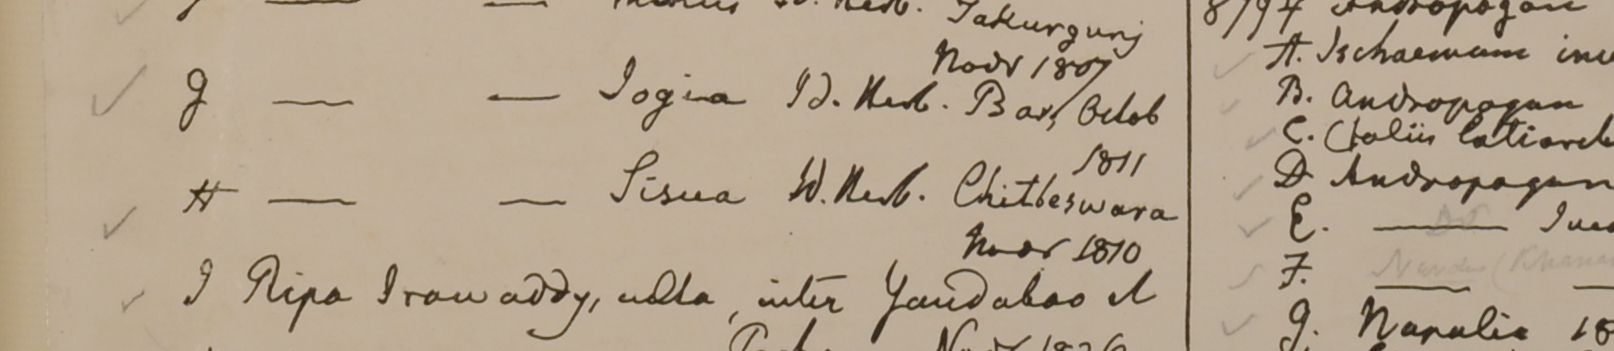 Herb. Takurgunj
Novr 1807
g — — Jogia Id. Herb. Bar, Octob
1811
H — — Sisua Id. Herb. Chitleswara
Novr 1810
I Ripa Irawaddy, ulta, inter Yandaboo et
Novr 1826
8794 Andropogon
A. Ischaemum
B. Andropogon
C.
D Andropogon
E. —
F. —
g. Napalia 18